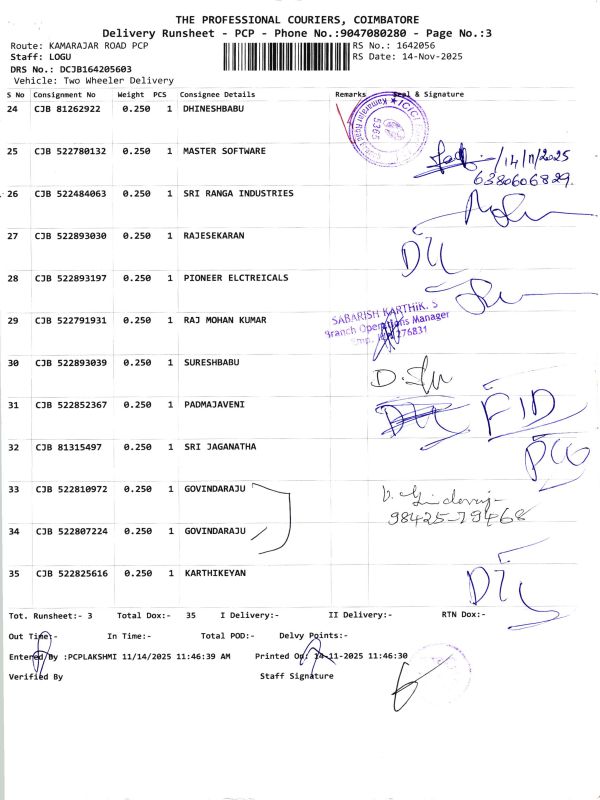 THE PROFESSIONAL COURIERS, COIMBATORE
Delivery Runsheet - PCP - Phone No.:9047080280 - Page No.:3
Route: KAMARAJAR ROAD PCP RS No.: 1642056
Staff: LOGU RS Date: 14-Nov-2025
DRS No.: DCJB164205603
Vehicle: Two Wheeler Delivery
S No Consignment No Weight PCS Consignee Details Remarks Seal & Signature
24 CJB 81262922 0.250 1 DHINESHBABU
ICICI Kamarajar Road 5365
25 CJB 522780132 0.250 1 MASTER SOFTWARE
14/11/2025
6380606829.
26 CJB 522484063 0.250 1 SRI RANGA INDUSTRIES
27 CJB 522893030 0.250 1 RAJESEKARAN
28 CJB 522893197 0.250 1 PIONEER ELCTREICALS
29 CJB 522791931 0.250 1 RAJ MOHAN KUMAR
SABARISH KARTHIK. S
Branch Operations Manager
30 CJB 522893039 0.250 1 SURESHBABU
31 CJB 522852367 0.250 1 PADMAJAVENI
32 CJB 81315497 0.250 1 SRI JAGANATHA
33 CJB 522810972 0.250 1 GOVINDARAJU
98425-79468
34 CJB 522807224 0.250 1 GOVINDARAJU
35 CJB 522825616 0.250 1 KARTHIKEYAN
Tot. Runsheet:- 3 Total Dox:- 35 I Delivery:- II Delivery:- RTN Dox:-
Out Time:- In Time:- Total POD:- Delvy Points:-
Entered By :PCPLAKSHMI 11/14/2025 11:46:39 AM Printed On: 14-11-2025 11:46:30
Verified By Staff Signature